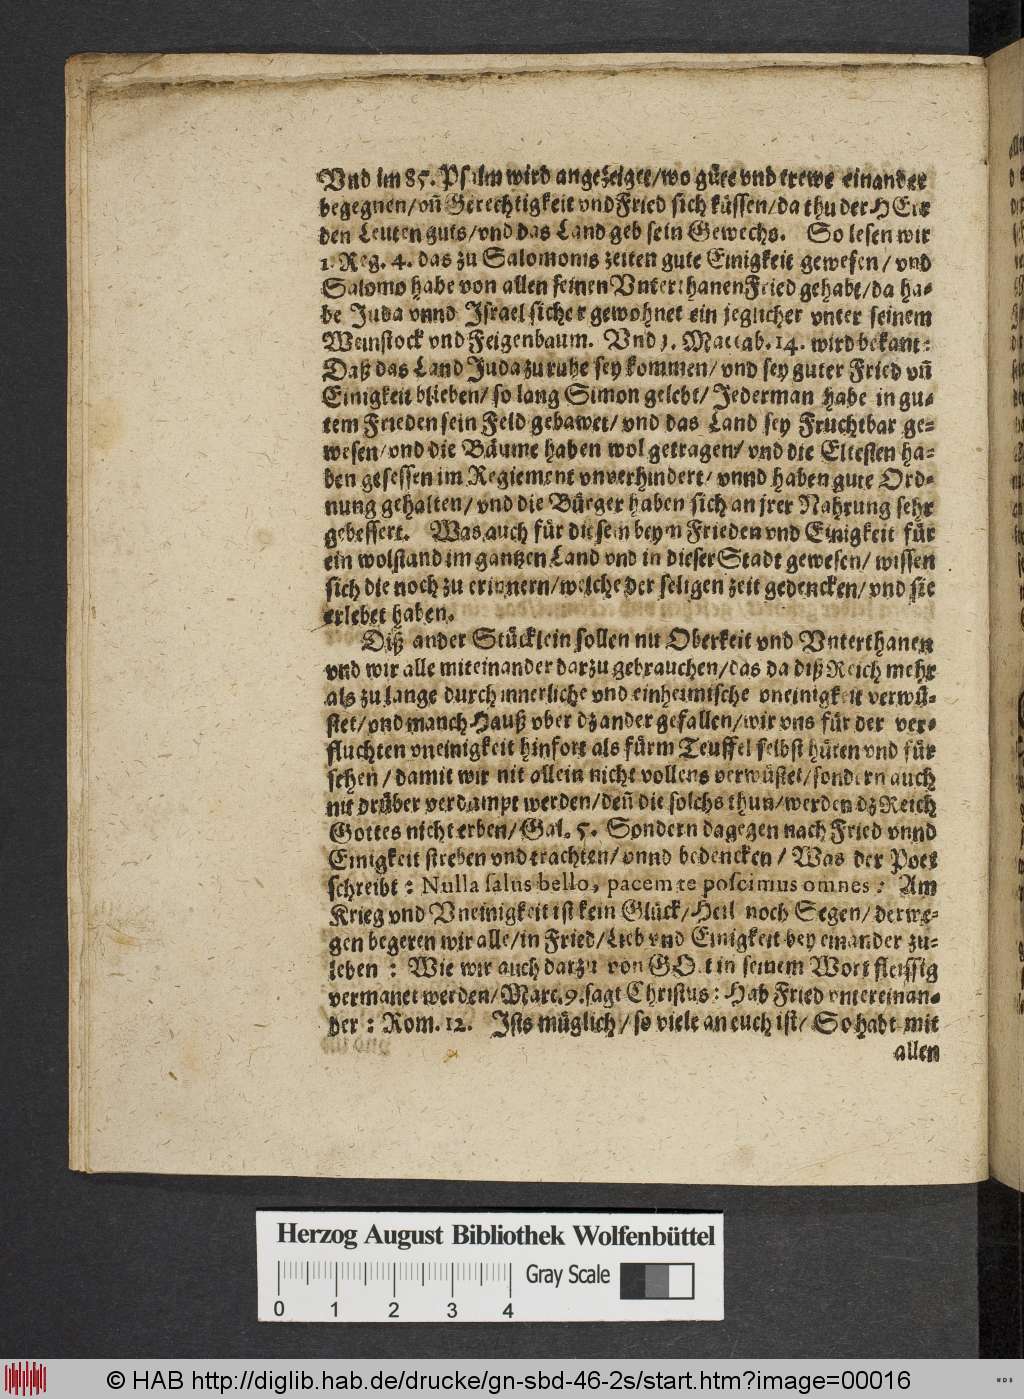 Vnd im 85. Psalm wird angezeiget/wo güte vnd trewe einander
begegnen/vñ Gerechtigkeit vnd Fried sich küssen/da thu der HErr
den Leuten guts/vnd das Land geb sein Gewechs. So lesen wir
1. Reg. 4. das zu Salomonis zeiten gute Einigkeit gewesen/ vnd
Salomo habe von allen seinen Vnterthanen Fried gehabt/da ha-
be Juda vnnd Israel sicher gewohnet ein jeglicher vnter seinem
Weinstock vnd Feigenbaum. Vnd 1. Maccab. 14. wird bekant:
Daß das Land Juda zu ruhe sey kommen/ vnd sey guter Fried vñ
Einigkeit blieben/ so lang Simon gelebt/ Jederman habe in gu-
tem Frieden sein Feld gebawet/ vnd das Land sey Fruchtbar ge-
wesen/vnd die Bäume haben wol getragen/ vnd die Eltesten ha-
ben gesessen im Regiement vnverhindert/ vnnd haben gute Ord-
nung gehalten/ vnd die Bürger haben sich an jrer Nahrung sehr
gebessert. Was auch für diesem beym Frieden vnd Einigkeit für
ein wolstand im gantzen Land vnd in dieser Stadt gewesen/ wissen
sich die noch zu erinnern/welche der seligen zeit gedencken/ vnd sie
erlebet haben.
Diß ander Stücklein sollen nu Oberkeit vnd Vnterthanen
vnd wir alle miteinander darzu gebrauchen/das da diß Reich mehr
als zu lange durch innerliche vnd einheimische vneinigkeit verwü-
stet/vnd manch Hauß vber dz ander gefallen/wir vns für der ver-
fluchten vneinigkeit hinfort als fürm Teuffel selbst hüten vnd für
sehen/ damit wir nit allein nicht vollens verwüstet/sondern auch
nit drüber verdampt werden/deñ die solchs thun/werden dz Reich
Gottes nicht erben/Gal. 5. Sondern dagegen nach Fried vnnd
Einigkeit streben vnd trachten/ vnnd bedencken/ Was der Poet
schreibt: Nulla salus bello, pacem te poscimus omnes: Am
Krieg vnd Vneinigkeit ist kein Glück/Heil noch Segen/ derwe-
gen begeren wir alle/in Fried/Lieb vnd Einigkeit bey einander zu-
leben: Wie wir auch darzu von GOtt in seinem Wort fleissig
vermanet werden/Marc. 9. sagt Christus: Hab Fried vntereinan-
der: Rom. 12. Ists müglich/ so viele an euch ist/ So habt mit
allen
Herzog August Bibliothek Wolfenbüttel
Gray Scale
0 1 2 3 4
© HAB http://diglib.hab.de/drucke/gn-sbd-46-2s/start.htm?image=00016